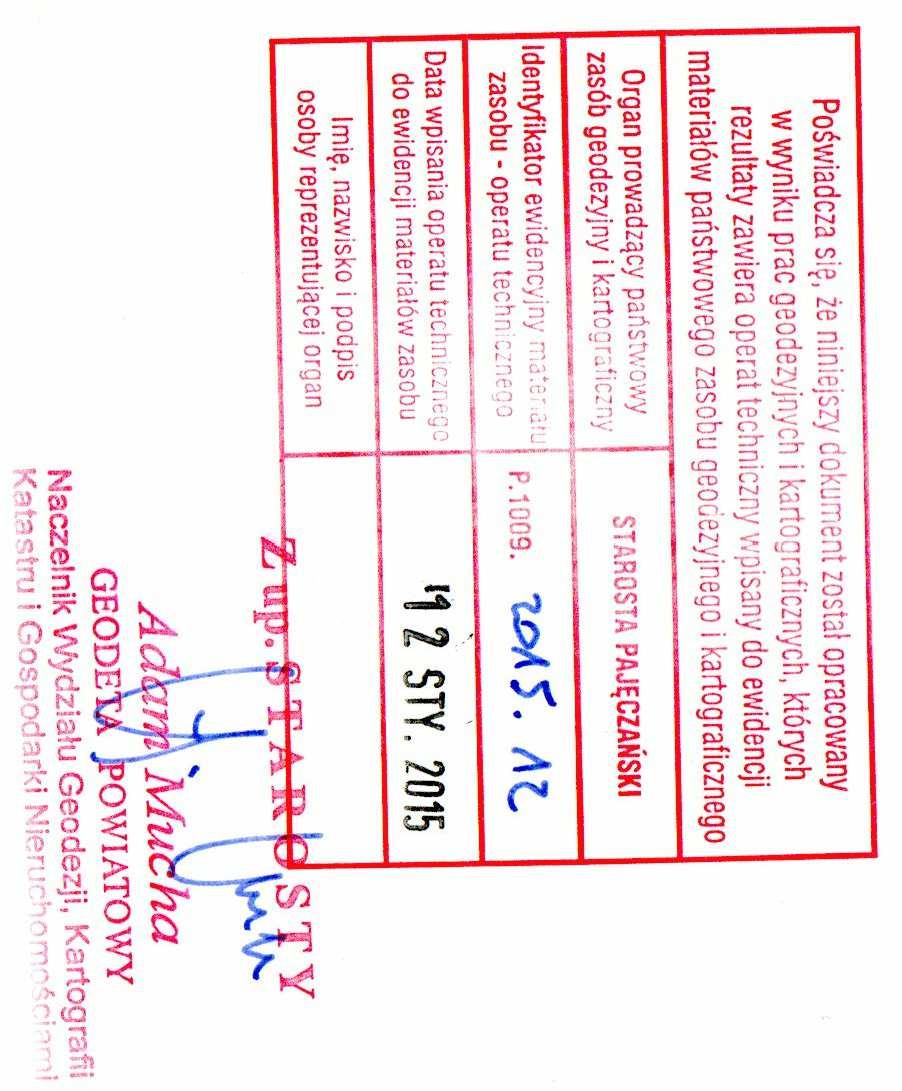 Poświadcza się, że niniejszy dokument został opracowany
w wyniku prac geodezyjnych i kartograficznych, których
rezultaty zawiera operat techniczny wpisany do ewidencji
materiałów państwowego zasobu geodezyjnego i kartograficznego
Organ prowadzący państwowy
zasób geodezyjny i kartograficzny
STAROSTA PAJĘCZAŃSKI
Identyfikator ewidencyjny materiału
zasobu - operatu technicznego
P.1009. 2015.12
Data wpisania operatu technicznego
do ewidencji materiałów zasobu
12 STY. 2015
Imię, nazwisko i podpis
osoby reprezentującej organ
Z up. STAROSTY
Adam Mucha
GEODETA POWIATOWY
Naczelnik Wydziału Geodezji, Kartografii
Katastru i Gospodarki Nieruchomościami